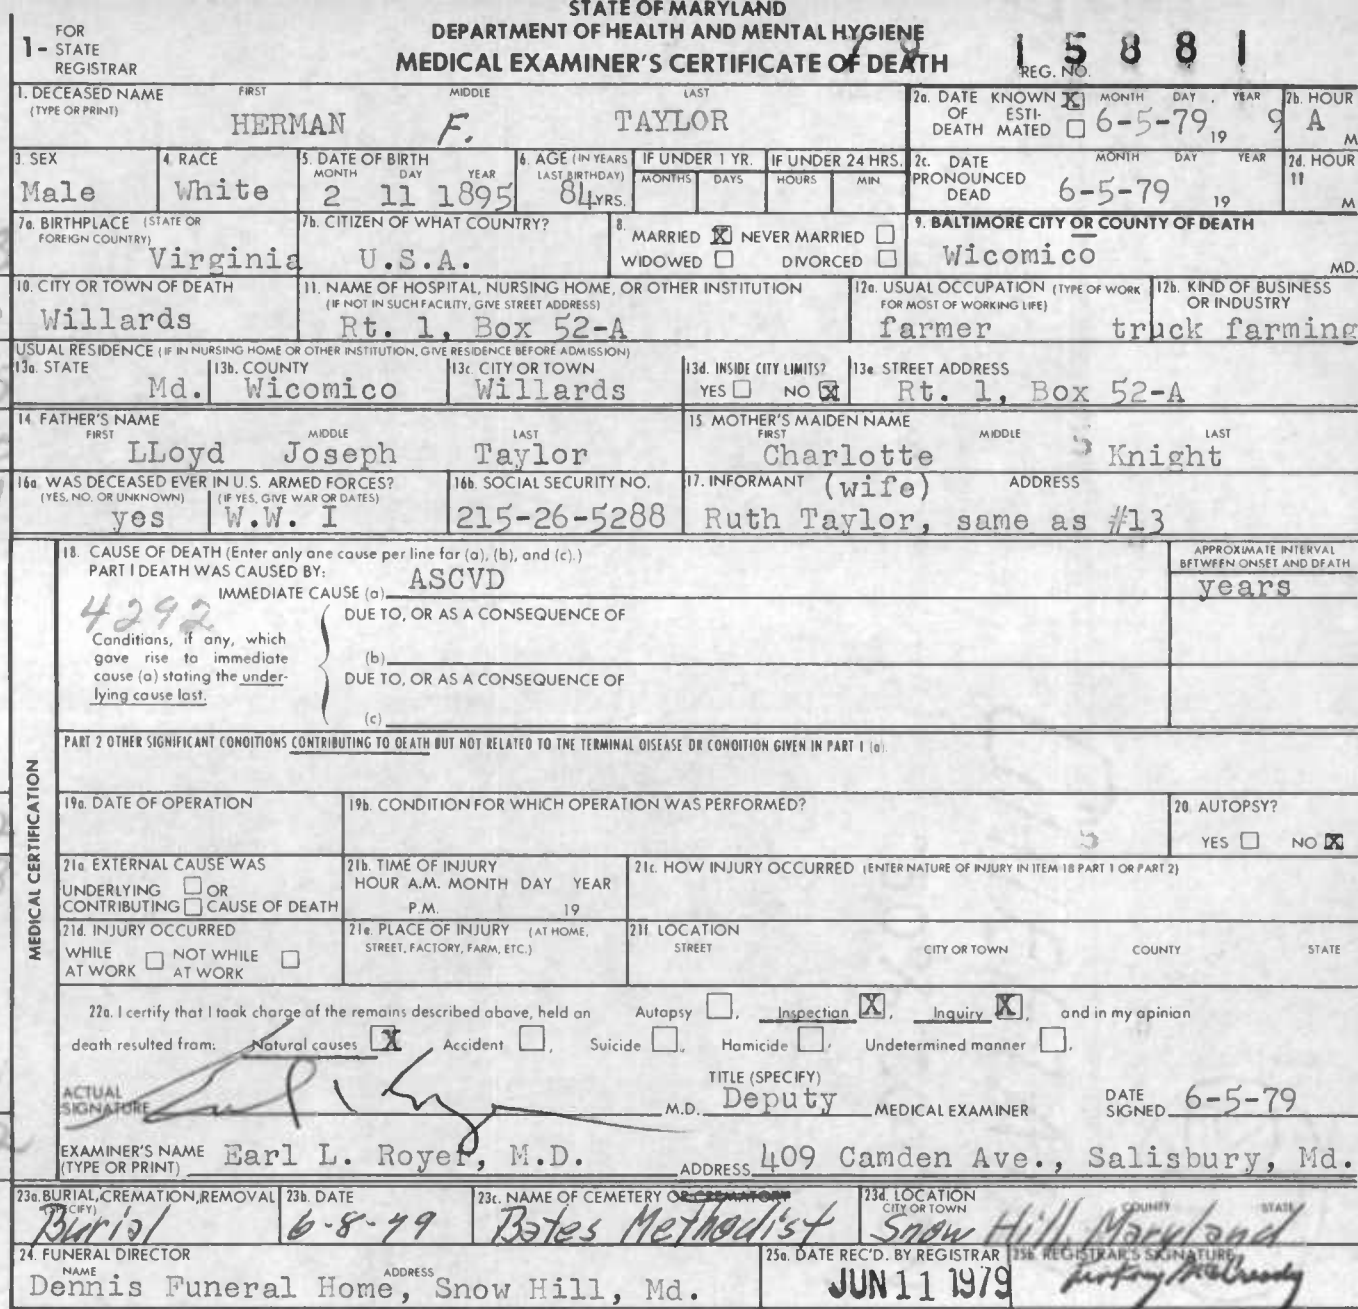 STATE OF MARYLAND
DEPARTMENT OF HEALTH AND MENTAL HYGIENE
MEDICAL EXAMINER'S CERTIFICATE OF DEATH
1- FOR STATE REGISTRAR
REG. NO. 15881
1. DECEASED NAME (TYPE OR PRINT) FIRST MIDDLE LAST
HERMAN F. TAYLOR
2a. DATE OF DEATH KNOWN X ESTIMATED MONTH DAY YEAR 2b. HOUR
6-5-79 19 9 A M
3. SEX 4. RACE 5. DATE OF BIRTH MONTH DAY YEAR 6. AGE (IN YEARS LAST BIRTHDAY) IF UNDER 1 YR. MONTHS DAYS IF UNDER 24 HRS. HOURS MIN
Male White 2 11 1895 84 YRS.
2c. DATE PRONOUNCED DEAD MONTH DAY YEAR 2d. HOUR
6-5-79 19 11 M
7a. BIRTHPLACE (STATE OR FOREIGN COUNTRY) Virginia
7b. CITIZEN OF WHAT COUNTRY? U.S.A.
8. MARRIED X NEVER MARRIED
WIDOWED DIVORCED
9. BALTIMORE CITY OR COUNTY OF DEATH
Wicomico MD.
10. CITY OR TOWN OF DEATH
Willards
11. NAME OF HOSPITAL, NURSING HOME, OR OTHER INSTITUTION
(IF NOT IN SUCH FACILITY, GIVE STREET ADDRESS)
Rt. 1, Box 52-A
12a. USUAL OCCUPATION (TYPE OF WORK FOR MOST OF WORKING LIFE)
farmer
12b. KIND OF BUSINESS OR INDUSTRY
truck farming
USUAL RESIDENCE (IF IN NURSING HOME OR OTHER INSTITUTION, GIVE RESIDENCE BEFORE ADMISSION)
13a. STATE 13b. COUNTY 13c. CITY OR TOWN 13d. INSIDE CITY LIMITS? 13e STREET ADDRESS
Md. Wicomico Willards YES NO X Rt. 1, Box 52-A
14 FATHER'S NAME FIRST MIDDLE LAST
LLoyd Joseph Taylor
15 MOTHER'S MAIDEN NAME FIRST MIDDLE LAST
Charlotte Knight
16a WAS DECEASED EVER IN U.S. ARMED FORCES?
(YES, NO, OR UNKNOWN) (IF YES, GIVE WAR OR DATES)
yes W.W. I
16b. SOCIAL SECURITY NO.
215-26-5288
17. INFORMANT (wife) ADDRESS
Ruth Taylor, same as #13
18. CAUSE OF DEATH (Enter only one cause per line for (a), (b), and (c).)
APPROXIMATE INTERVAL BETWEEN ONSET AND DEATH
PART I DEATH WAS CAUSED BY:
IMMEDIATE CAUSE (a) ASCVD years
4292
Conditions, if any, which gave rise to immediate cause (a) stating the underlying cause last.
DUE TO, OR AS A CONSEQUENCE OF
(b)
DUE TO, OR AS A CONSEQUENCE OF
(c)
PART 2 OTHER SIGNIFICANT CONDITIONS CONTRIBUTING TO DEATH BUT NOT RELATED TO THE TERMINAL DISEASE OR CONDITION GIVEN IN PART 1 (a)
MEDICAL CERTIFICATION
19a. DATE OF OPERATION
19b. CONDITION FOR WHICH OPERATION WAS PERFORMED?
5
20 AUTOPSY?
YES NO X
21a EXTERNAL CAUSE WAS
UNDERLYING OR
CONTRIBUTING CAUSE OF DEATH
21b. TIME OF INJURY
HOUR A.M. MONTH DAY YEAR
P.M. 19
21c. HOW INJURY OCCURRED (ENTER NATURE OF INJURY IN ITEM 18 PART 1 OR PART 2)
21d. INJURY OCCURRED
WHILE AT WORK NOT WHILE AT WORK
21e. PLACE OF INJURY (AT HOME, STREET, FACTORY, FARM, ETC.)
21f LOCATION
STREET CITY OR TOWN COUNTY STATE
22a. I certify that I took charge of the remains described above, held an Autopsy , Inspection X, Inquiry X, and in my opinion
death resulted from: Natural causes X Accident , Suicide , Homicide , Undetermined manner .
ACTUAL SIGNATURE M.D. TITLE (SPECIFY) Deputy MEDICAL EXAMINER DATE SIGNED 6-5-79
EXAMINER'S NAME (TYPE OR PRINT) Earl L. Royer, M.D. ADDRESS 409 Camden Ave., Salisbury, Md.
23a. BURIAL, CREMATION, REMOVAL (SPECIFY) 23b. DATE 23c. NAME OF CEMETERY OR CREMATORY 23d. LOCATION CITY OR TOWN COUNTY STATE
Burial 6-8-79 Bates Methodist Snow Hill, Maryland
24. FUNERAL DIRECTOR NAME ADDRESS
Dennis Funeral Home, Snow Hill, Md.
25a. DATE REC'D. BY REGISTRAR
JUN 11 1979
25b. REGISTRAR'S SIGNATURE